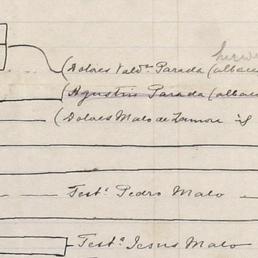 (Dolores Vald.ª Parada (albace
(Agustin Parada (albace
(Dolores Malo de Zamora
Test.ª Pedro Malo
Test.ª Jesus Malo